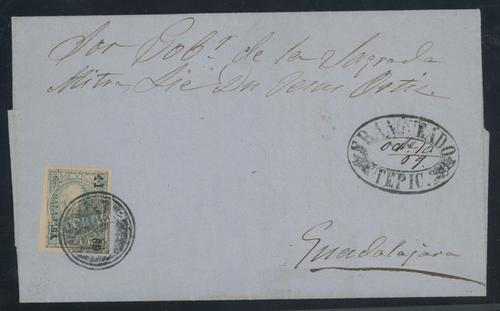 Sor Gobr de la Sagrada
Mitra Lic Dn Jesus Ortiz
FRANQUEADO
Oct 10
69.
TEPIC.
MEXICO
Guadalajara